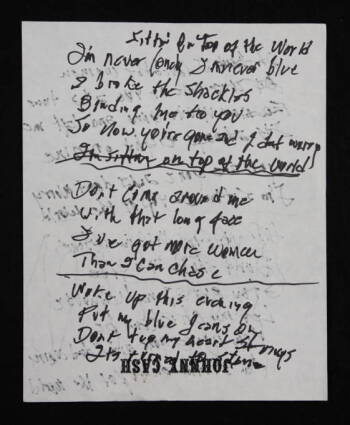 Sittin' On Top of the World
I'm never lonely I'm never blue
I broke the shackles
Binding me to you
So now you're gone and I don't worry
I'm sitting on top of the world
Don't Come around me
With that long face
I've got more women
Than I can chase
Woke up this evening
Put my blue Jeans on
Dont tug my heart strings
JOHNNY CASH